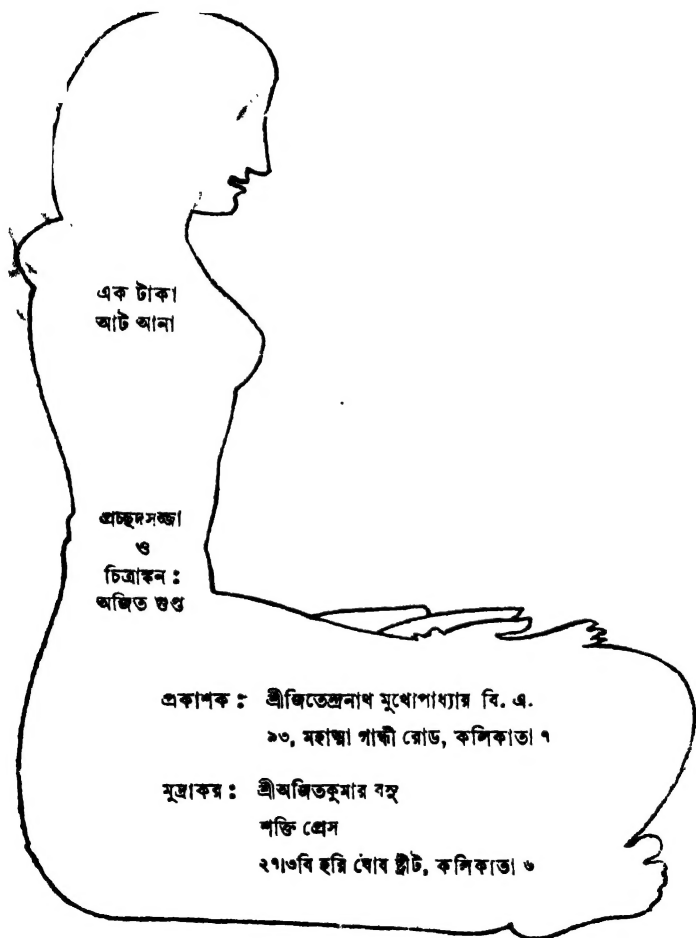 এক টাকা
আট আনা
প্রচ্ছদসজ্জা
ও
চিত্রাঙ্কন :
অজিত গুপ্ত
প্রকাশক : শ্রীজিতেন্দ্রনাথ মুখোপাধ্যায় বি. এ.
৯৩, মহাত্মা গান্ধী রোড, কলিকাতা ৭
মুদ্রাকর : শ্রীঅজিতকুমার বসু
শক্তি প্রেস
২৭।৩বি হরি ঘোষ স্ট্রীট, কলিকাতা ৬